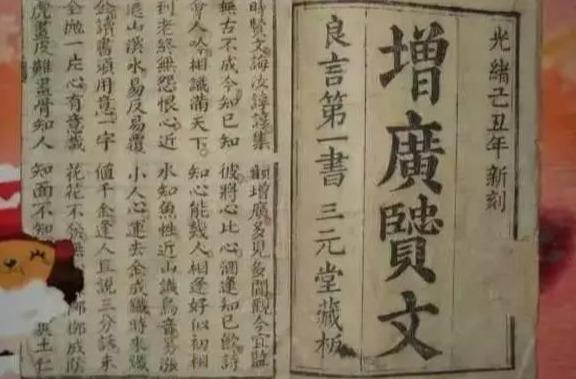 光緒己丑年新刻
增廣贒文
良言第一書 三元堂藏板
時賢文誨汝諄諄集
韻增廣多見多聞觀今宜監
無古不成今知己知
彼將心比心酒逢知己飲詩
會人吟相識滿天下
知心能幾人相逢好似初相
到老終無怨恨心近
水知魚性近山識鳥音易漲
退山溪水易反易覆
小人心運去金成鐵時來鐵
金讀書須用意一字
值千金逢人且說三分話未
全拋一片心有意栽
花花不發無 柳成陰
虎畫皮難畫骨知人
知面不知 土仁